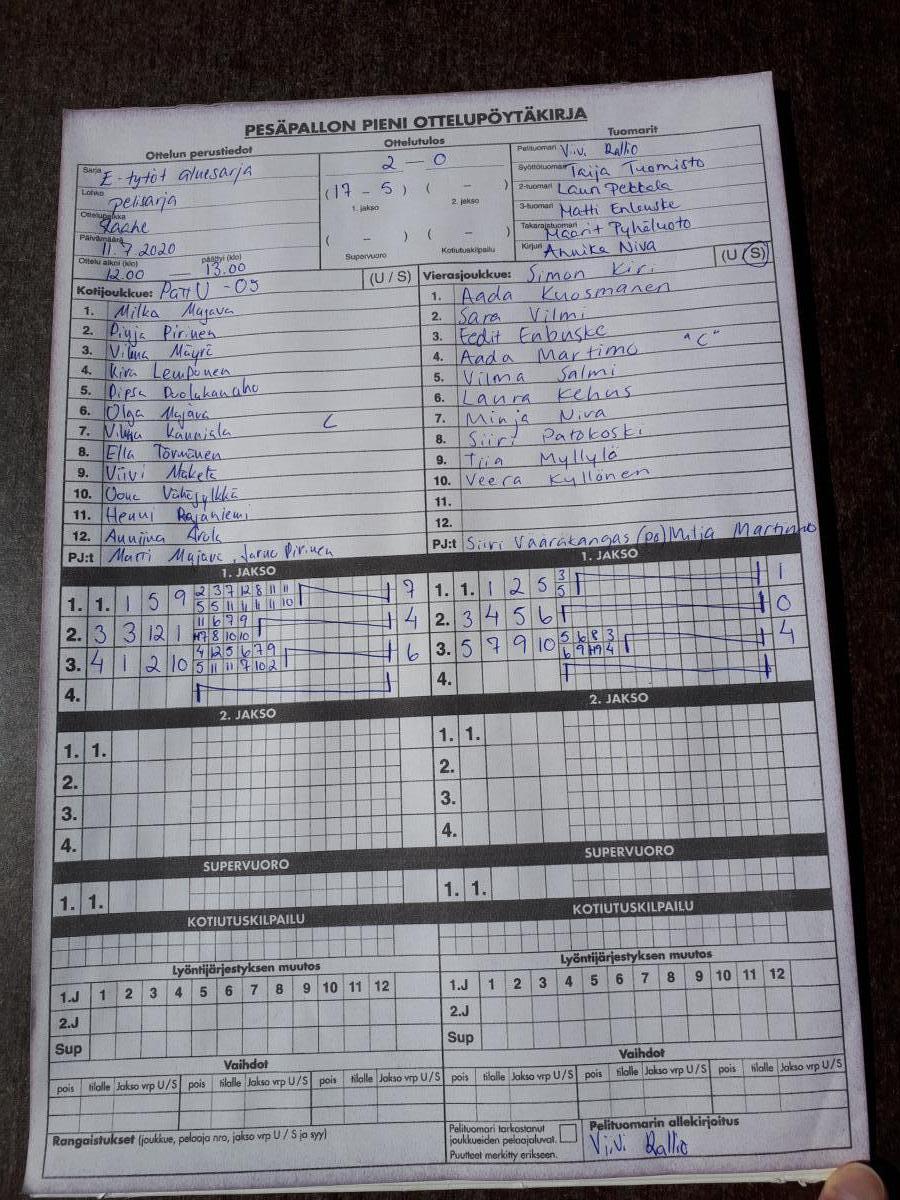 PESÄPALLON PIENI OTTELUPÖYTÄKIRJA
Ottelun perustiedot
Ottelutulos
Tuomarit
Sarja E-tytöt aluesarja
Lohko pelisarja
Ottelupaikka Raahe
Päivämäärä 11.7.2020
Ottelu alkoi (klo) päättyi (klo)
12.00 — 13.00
2 — 0
(17 - 5) ( - )
1. jakso 2. jakso
( - ) ( - )
Supervuoro Kotiutuskilpailu
Pelituomari Viivi Rallio
Syöttötuomari Taija Tuomisto
2-tuomari Lauri Pekkala
3-tuomari Matti Enbuske
Takarajatuomari Maarit Pyhäluoto
Kirjuri Annika Niva
Kotijoukkue: PattU -09 (U / S)
1. Milka Majava
2. Pinja Pirinen
3. Vilma Mäyrä
4. Kira Lemponen
5. Pipsa Puolakanaho
6. Olga Majava
7. Vilma Kanniala C
8. Ella Törmänen
9. Viivi Mäkelä
10. Oona Vähäjylkkä
11. Henni Rajaniemi
12. Anniina Arola
PJ:t Martti Majava, Jarno Pirinen
Vierasjoukkue: Simon Kiri (U / S)
1. Aada Kuosmanen
2. Sara Vilmi
3. Eedit Enbuske
4. Aada Martimo "C"
5. Vilma Salmi
6. Laura Kehus
7. Minja Niva
8. Siiri Patokoski
9. Tiia Myllylä
10. Veera Kyllönen
11.
12.
PJ:t Siiri Vaarakangas (po) Milja Martimo
1. JAKSO
1. 1. 1 5 9 2 3 7 12 8 11 11 7
5 5 11 11 11 10
2. 3 3 12 1 11 6 7 9 4
8 10 10
3. 4 1 2 10 4 12 5 6 7 9 6
5 11 11 7 10 2
4.
1. JAKSO
1. 1. 1 2 5 3 1
5
2. 3 4 5 6 0
3. 5 7 9 10 5 6 8 3 4
6 9 4
4.
2. JAKSO
1. 1.
2.
3.
4.
2. JAKSO
1. 1.
2.
3.
4.
SUPERVUORO
1. 1.
SUPERVUORO
1. 1.
KOTIUTUSKILPAILU
KOTIUTUSKILPAILU
Lyöntijärjestyksen muutos
1.J 1 2 3 4 5 6 7 8 9 10 11 12
2.J
Sup
Lyöntijärjestyksen muutos
1.J 1 2 3 4 5 6 7 8 9 10 11 12
2.J
Sup
Vaihdot
pois tilalle Jakso vrp U/S pois tilalle Jakso vrp U/S pois tilalle Jakso vrp U/S
Vaihdot
pois tilalle Jakso vrp U/S pois tilalle Jakso vrp U/S pois tilalle Jakso vrp U/S
Rangaistukset (joukkue, pelaaja nro, jakso vrp U / S ja syy)
Pelituomari tarkastanut
joukkueiden pelaajaluvat.
Puutteet merkitty erikseen.
Pelituomarin allekirjoitus
Viivi Rallio